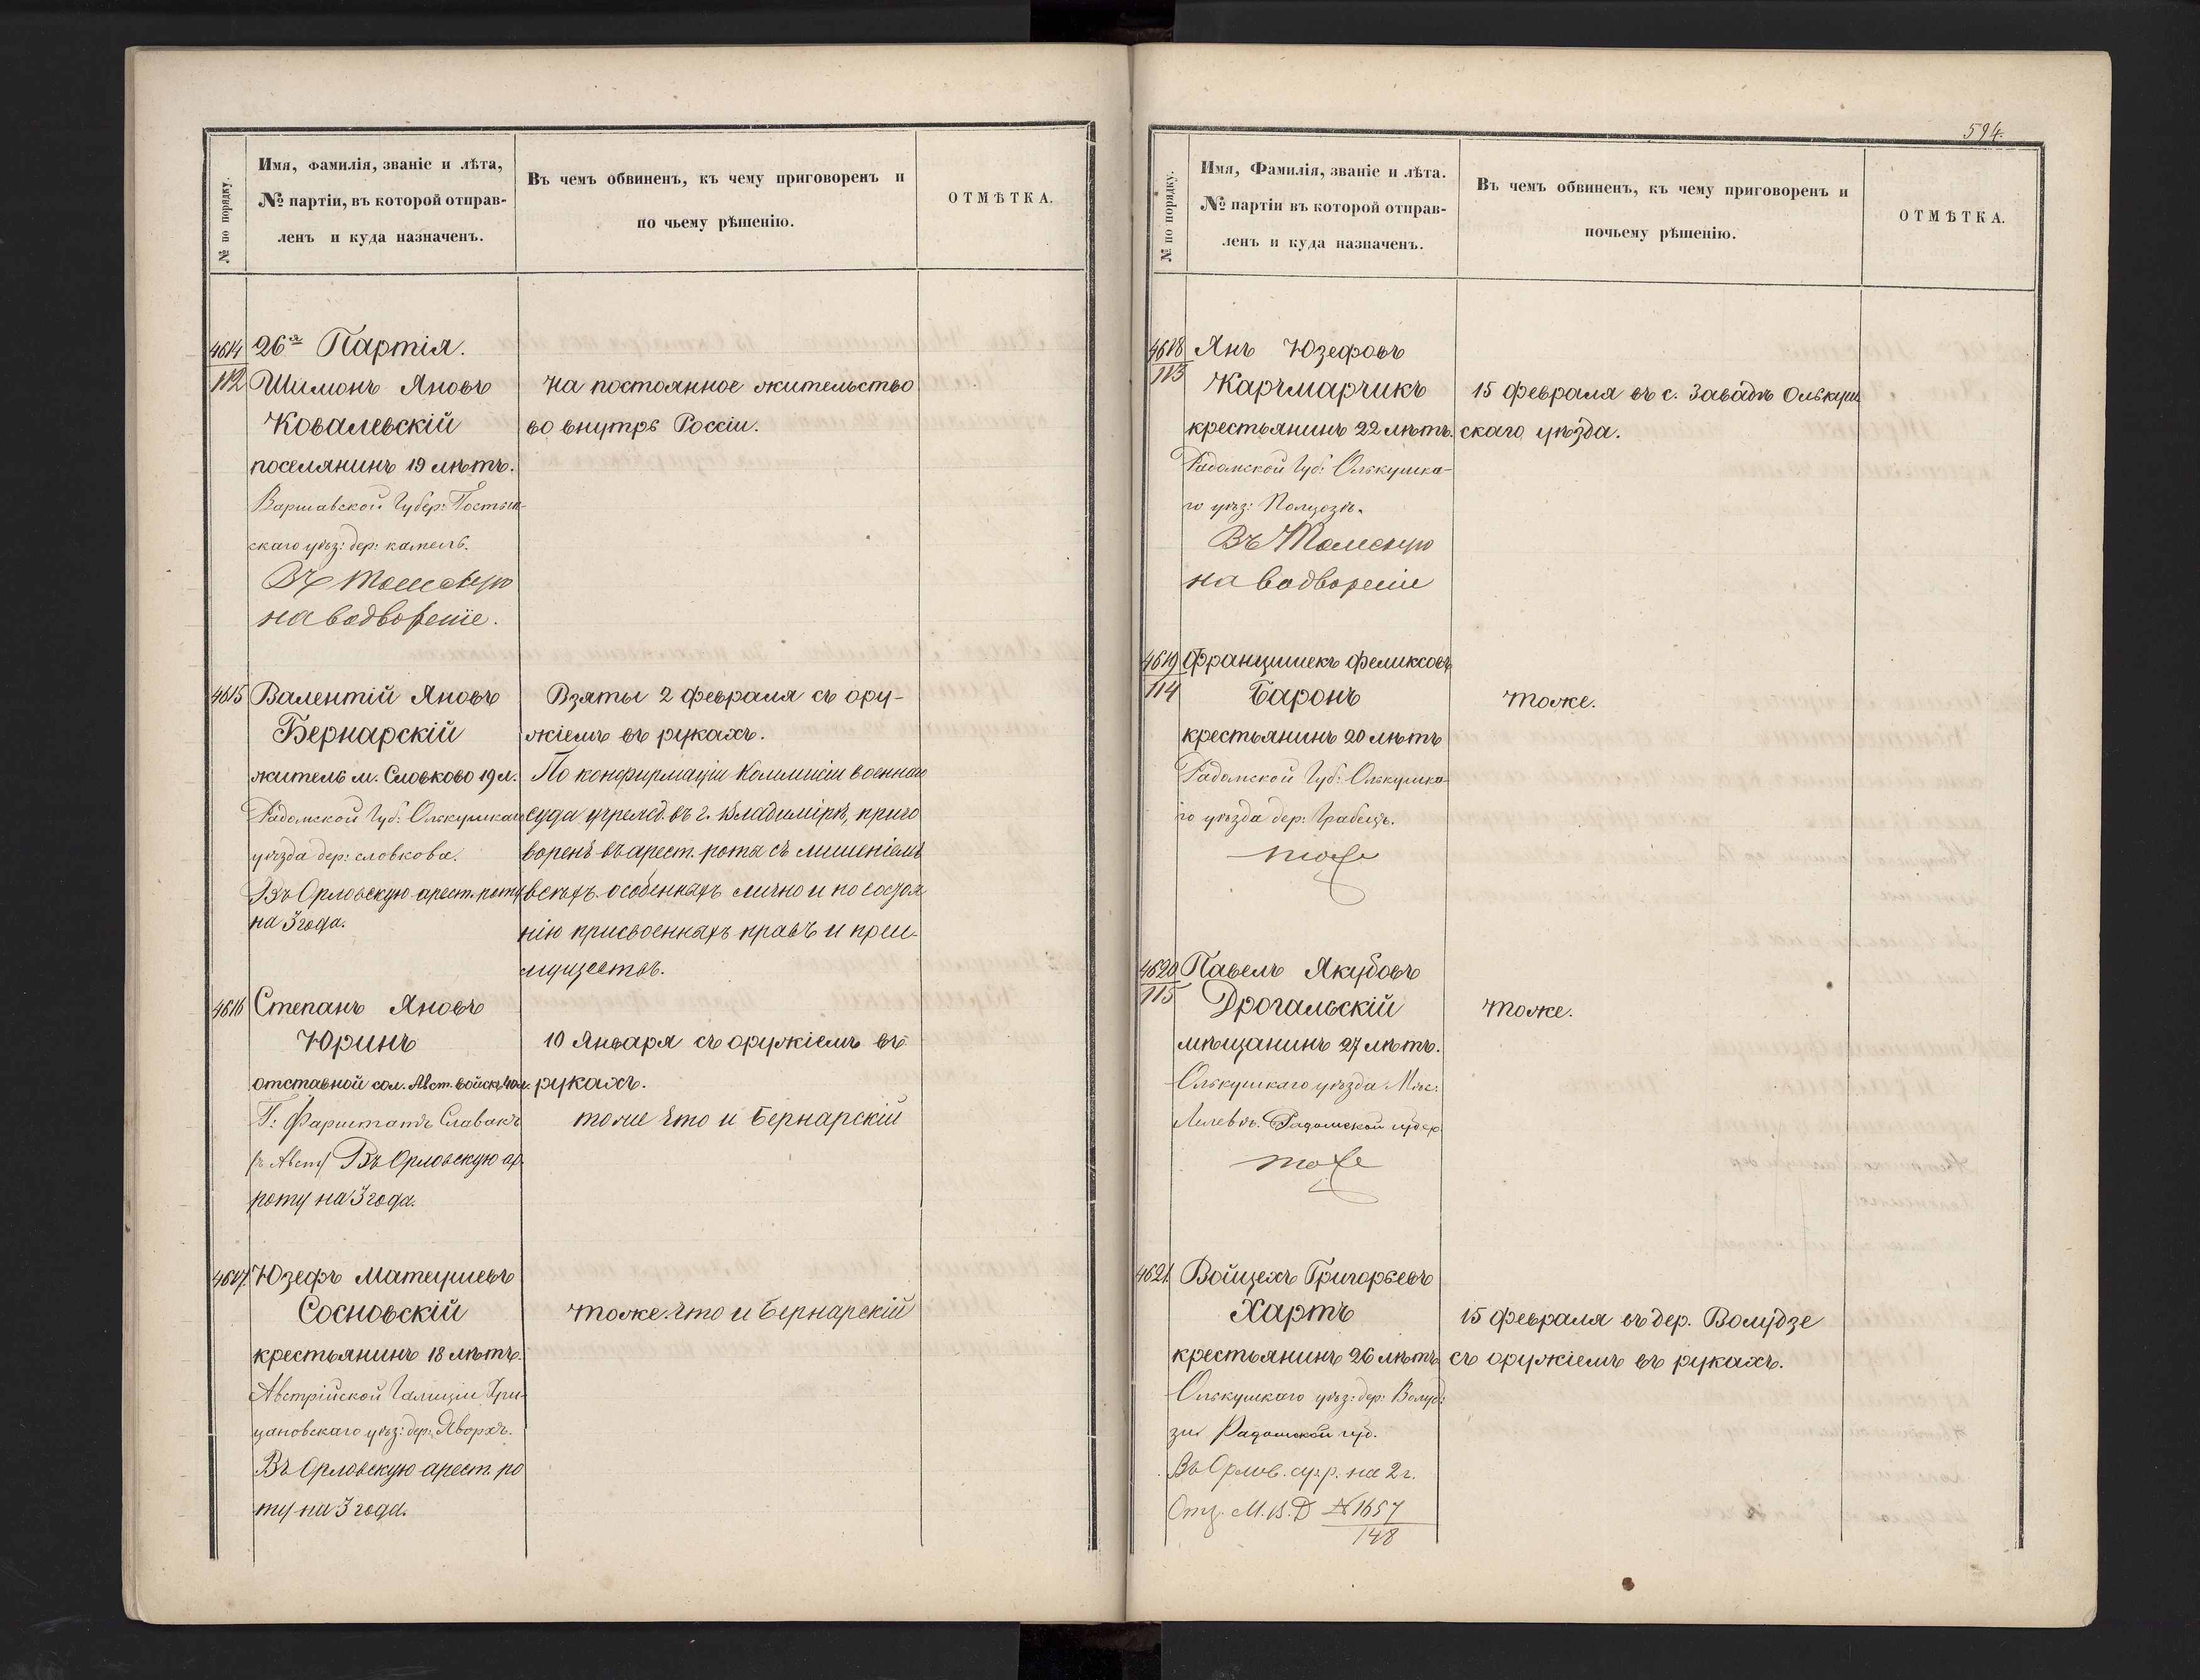 № по порядку.
Имя, фамилія, званіе и лѣта,
№ партіи, въ которой отправ-
ленъ и куда назначенъ.
Въ чемъ обвиненъ, къ чему приговоренъ и
по чьему рѣшенію.
ОТМѢТКА.
4614
112
26я Партія.
Шимонъ Яновъ
Ковалевскій
поселянинъ 19 лѣтъ.
Варшавской Губер: Гостын-
скаго уѣз: дер: камень.
Въ Томскую
на водвореніе.
На постоянное жительство
во внутрь Россіи.
4615
Валентій Яновъ
Бернарскій
житель м. Славково 19 л.
Радомской Губ: Олькушкаго
уѣзда дер: словкова.
Въ Орловскую арест. роту
на 3 года.
Взяты 2 февраля съ ору-
жіемъ въ рукахъ.
По конфирмаціи Коммисіи военнаго
суда учрежд. въ г. Владимірѣ, приго
воренъ въ арест. роты съ лишеніемъ
всѣхъ особенныхъ лично и по состоя
нію присвоенныхъ правъ и преи-
муществъ.
4616
Степанъ Яновъ
Юринъ
отставной сол. Авст. войскъ 40 л.
Г: Фарштатъ Славакъ
(въ Авст) Въ Орловскую ар.
роту на 3 года.
10 Января съ оружіемъ въ
рукахъ.
тоже что и Бернарскій
4617
Юзефъ Матеушевъ
Сосновскій
крестьянинъ 18 лѣтъ.
Австрійской Галиціи Хри-
цановскаго уѣз: дер: Яворхъ.
Въ Орловскую арест. ро
ту на 3 года.
тоже что и Бернарскій
594.
№ по порядку.
Имя, Фамилія, званіе и лѣта.
№ партіи въ которой отправ-
ленъ и куда назначенъ.
Въ чемъ обвиненъ, къ чему приговоренъ и
почьему рѣшенію.
ОТМѢТКА.
4618
113
Янъ Юзефовъ
Карчмарчикъ
крестьянинъ 22 лѣтъ.
Радомской Губ: Олькушка-
го уѣз:
Въ Томскую
на водвореніе
15 февраля въ с. Завадъ Олькуш
скаго уѣзда.
4619
114
Францишекъ феликсовъ
Баронъ
крестьянинъ 20 лѣтъ
Радомской Губ: Олькушка-
го уѣзда дер: Грабецъ.
тоже
тоже.
4620
115
Павелъ Якубовъ
Дрогальскій
мѣщанинъ 27 лѣтъ.
Олькушкаго уѣзда Мѣс:
Радомской губер.
тоже
тоже.
4621.
Войцехъ Григорьевъ
Хартъ
крестьянинъ 26 лѣтъ
Олькушкаго уѣз: дер: Волуд:
зи Радомской губ.
Въ Орлов. ар. р. на 2 г.
Отз. М. В. Д №1657
148
15 февраля въ дер. Волудзе
съ оружіемъ въ рукахъ.